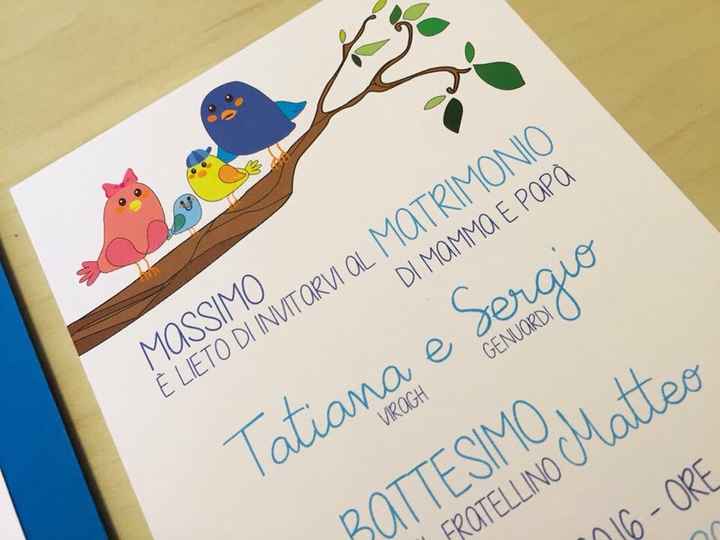 MASSIMO
È LIETO DI INVITARVI AL MATRIMONIO
DI MAMMA E PAPÀ
Tatiana e Sergio
VIRAGH GENUARDI
BATTESIMO
FRATELLINO Matteo
- ORE